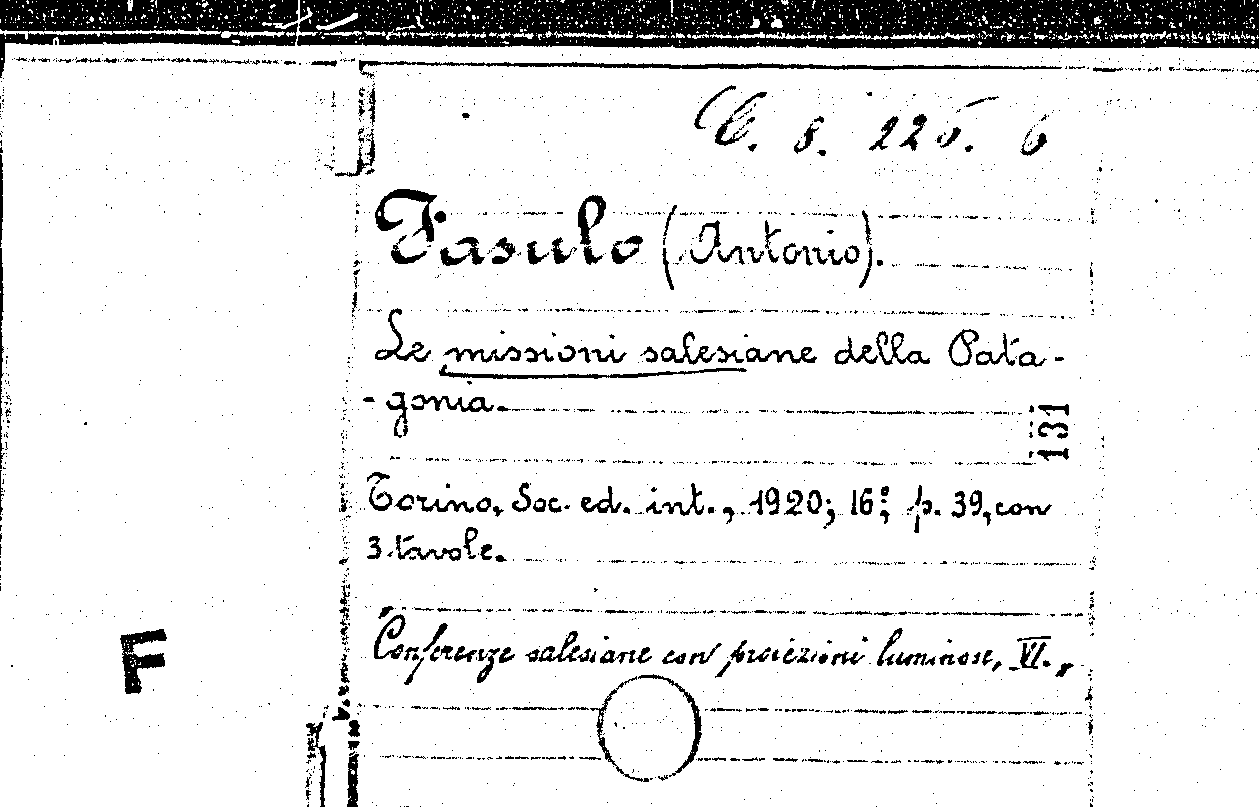 C. 8. 225. 6
Fasulo (Antonio).
Le missioni salesiane della Pata-
-gonia.
131
Torino, Soc. ed. int., 1920; 16°; p. 39, con
3 tavole.
Conferenze salesiane con proiezioni luminose, VI.,
F